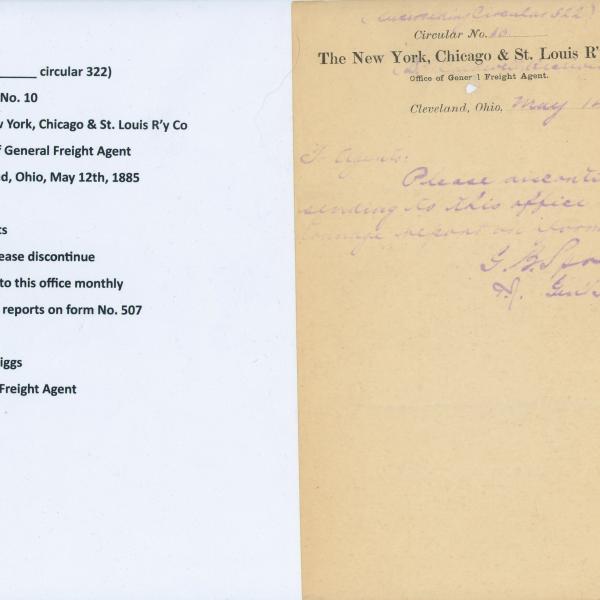 ______ circular 322)
No. 10
w York, Chicago & St. Louis R'y Co
f General Freight Agent
d, Ohio, May 12th, 1885
ts
ease discontinue
to this office monthly
reports on form No. 507
iggs
Freight Agent
Circular 322)
Circular No. 10
The New York, Chicago & St. Louis R'
Office of Gener l Freight Agent.
Cleveland, Ohio, May 12
To Agents:
Please disconti
sending to this office
tonnage report on form
G. B. Sp
Gen'l